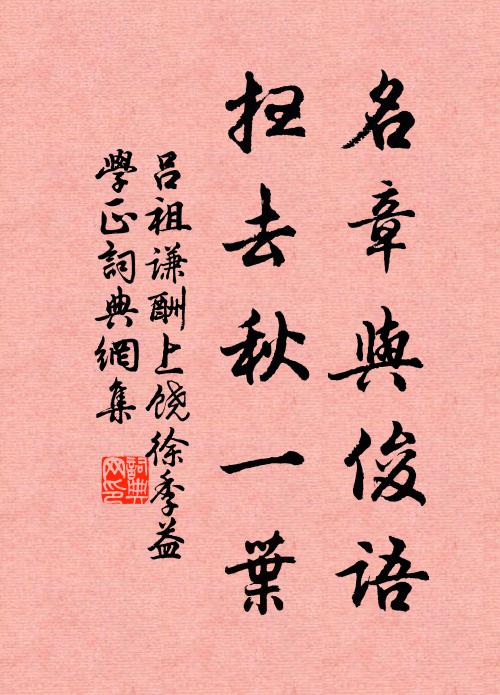 名章與俊語
扫去秋一葉
吕祖谦酬上饶徐季益
學正詞典網集
詞典网印